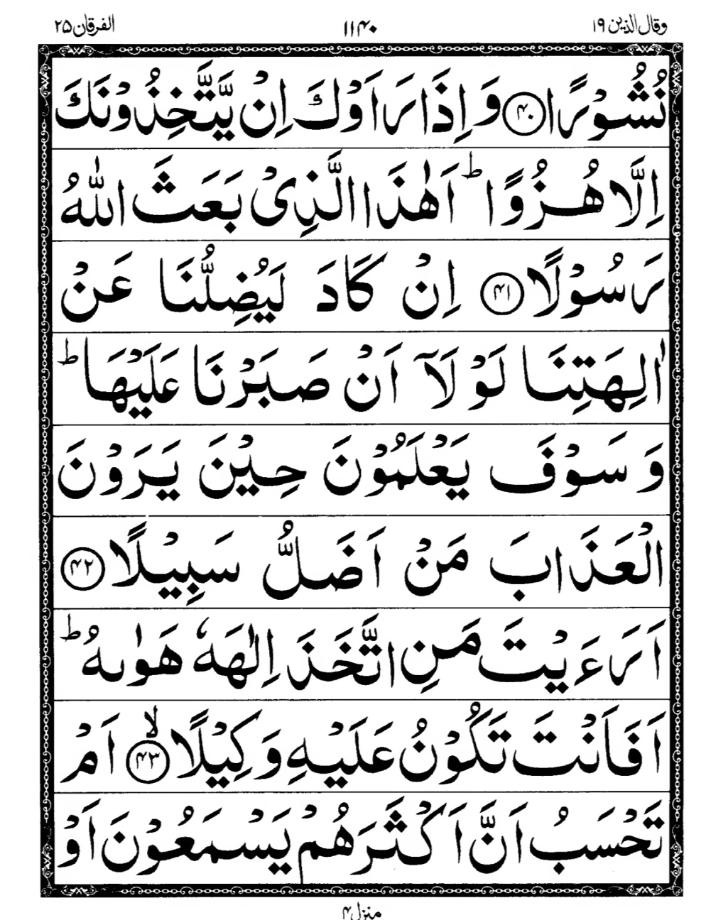 وقال الذین ۱۹ ۱۱۴۰ الفرقان ۲۵
نُشُوْرًا ﴿۴۰﴾ وَ اِذَا رَاَوْكَ اِنْ یَّتَّخِذُوْنَكَ
اِلَّا هُزُوًا ؕ اَهٰذَا الَّذِیْ بَعَثَ اللّٰهُ
رَسُوْلًا ﴿۴۱﴾ اِنْ كَادَ لَیُضِلُّنَا عَنْ
اٰلِهَتِنَا لَوْ لَاۤ اَنْ صَبَرْنَا عَلَیْهَا ؕ
وَ سَوْفَ یَعْلَمُوْنَ حِیْنَ یَرَوْنَ
الْعَذَابَ مَنْ اَضَلُّ سَبِیْلًا ﴿۴۲﴾
اَرَءَیْتَ مَنِ اتَّخَذَ اِلٰهَهٗ هَوٰىهُ ؕ
اَفَاَنْتَ تَكُوْنُ عَلَیْهِ وَكِیْلًا ﴿۴۳﴾ۙ اَمْ
تَحْسَبُ اَنَّ اَكْثَرَهُمْ یَسْمَعُوْنَ اَوْ
منزل ۴